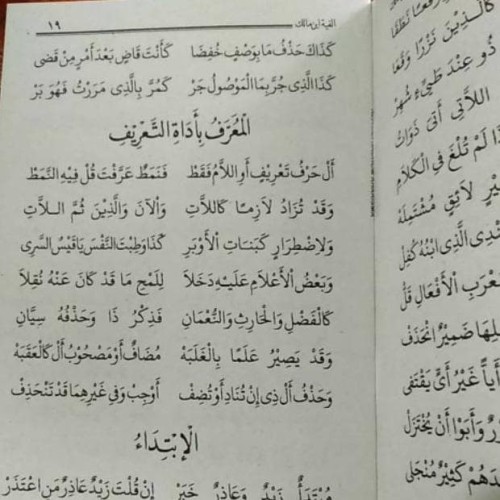 ألفية ابن مالك ١٩
كَذَاكَ حَذْفُ مَا بِوَصْفٍ خُفِضَا كَأَنْتَ قَاضٍ بَعْدَ أَمْرٍ مِنْ قَضَى
كَذَا الَّذِي جُرَّ بِمَا الْمَوْصُولَ جَرّْ كَمُرَّ بِالَّذِي مَرَرْتُ فَهْوَ بَرّْ
الْمُعَرَّفُ بِأَدَاةِ التَّعْرِيفِ
أَلْ حَرْفُ تَعْرِيفٍ أَوِ اللَّامُ فَقَطْ فَنَمَطٌ عَرَّفْتَ قُلْ فِيهِ النَّمَطْ
وَقَدْ تُزَادُ لَازِمًا كَاللَّاتِ وَالْآنَ وَالَّذِينَ ثُمَّ اللَّاتِ
وَلِاضْطِرَارٍ كَبَنَاتِ الْأَوْبَرِ كَذَا وَطِبْتَ النَّفْسَ يَا قَيْسُ السَّرِي
وَبَعْضُ الْأَعْلَامِ عَلَيْهِ دَخَلَا لِلَمْحِ مَا قَدْ كَانَ عَنْهُ نُقِلَا
كَالْفَضْلِ وَالْحَارِثِ وَالنُّعْمَانِ فَذِكْرُ ذَا وَحَذْفُهُ سِيَّانِ
وَقَدْ يَصِيرُ عَلَمًا بِالْغَلَبَهْ مُضَافٌ أَوْ مَصْحُوبُ أَلْ كَالْعَقَبَهْ
وَحَذْفَ أَلْ ذِي إِنْ تُنَادِ أَوْ تُضِفْ أَوْجِبْ وَفِي غَيْرِهِمَا قَدْ تَنْحَذِفْ
الْإِبْتِدَاءُ
مُبْتَدَأٌ زَيْدٌ وَعَاذِرٌ خَبَرْ إِنْ قُلْتَ زَيْدٌ عَاذِرٌ مَنِ اعْتَذَرْ
كَالَّذِينَ نَزْرًا وَقَعَا
ذُو عِنْدَ طَيِّءٍ شُهِرْ
اللَّاتِي أَتَى ذَوَاتُ
تُلْغَ فِي الْكَلَامِ
لَائِقٍ مُشْتَمِلَهْ
الَّذِي ابْنُهُ كُفِلْ
الْأَفْعَالِ قَلّْ
ضَمِيرٌ انْحَذَفْ
أَيًّا غَيْرُ أَيٍّ يَقْتَفِي
وَأَبَوْا أَنْ يُخْتَزَلْ
كَثِيرٌ مُنْجَلِي